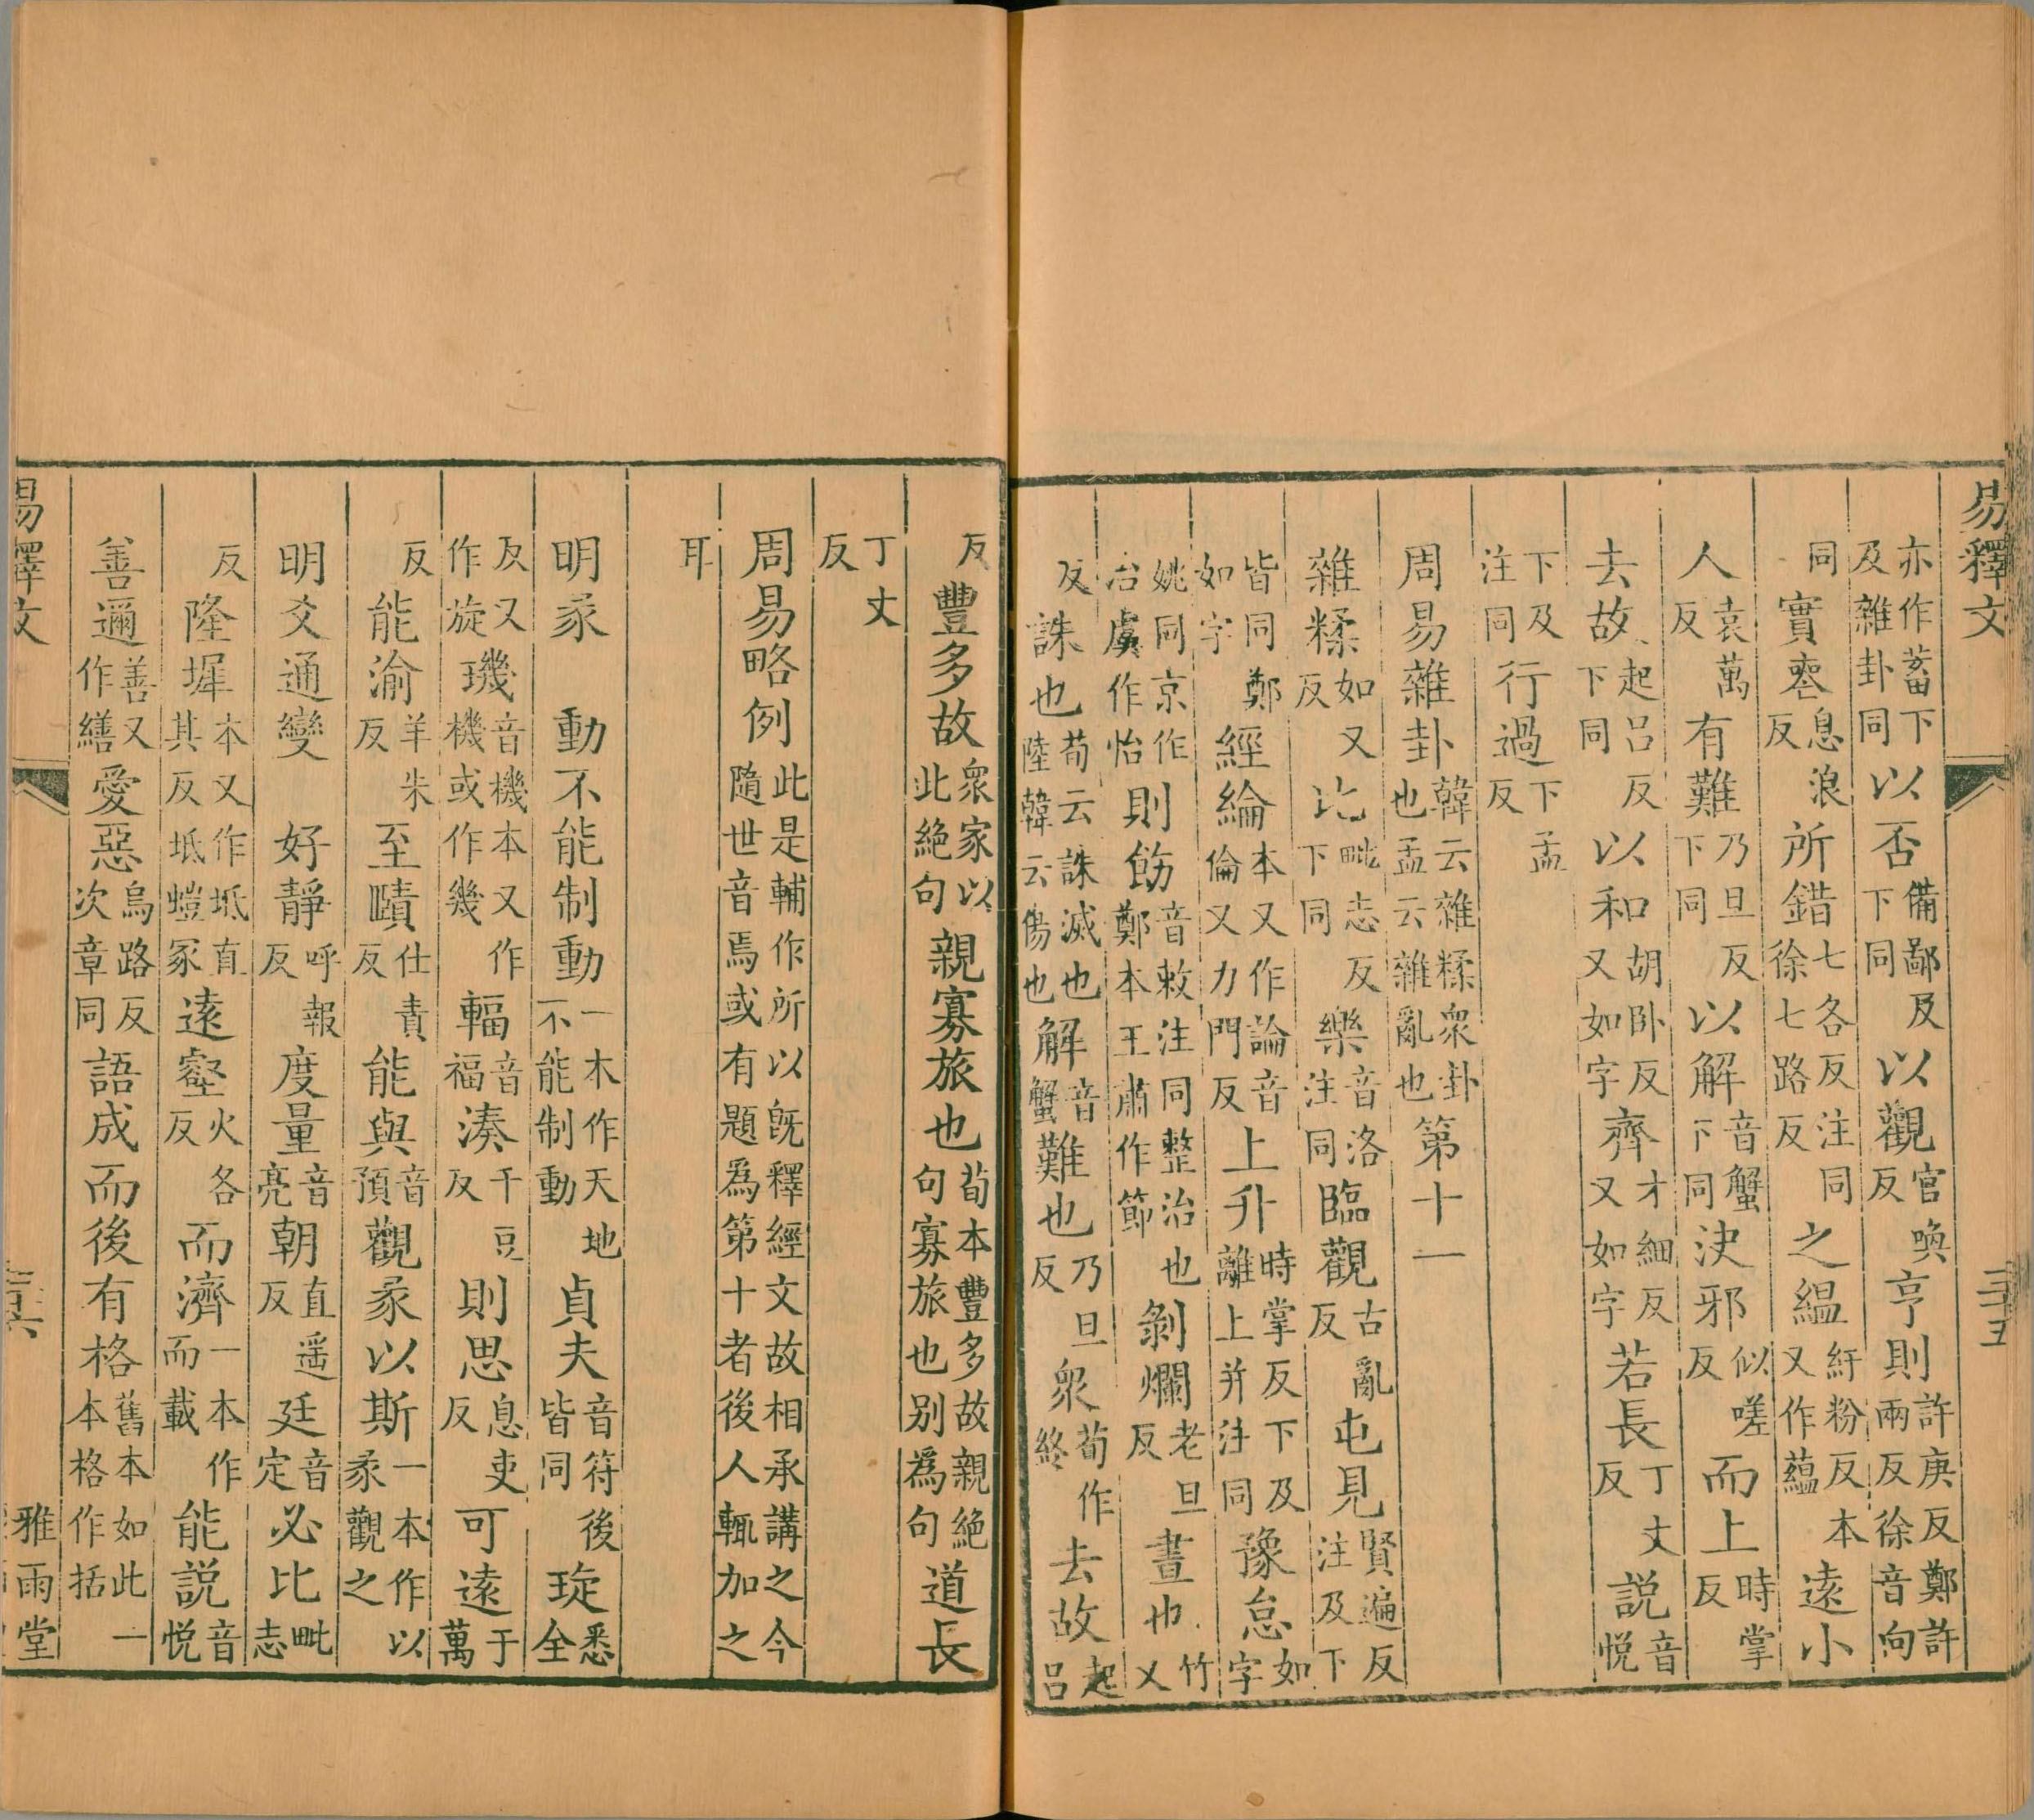 易釋文 三十五
亦作蓄下及雜卦同以否備鄙反下同以觀官喚反亨則許庚反鄭許兩反徐音向
同實喪息浪反所錯七各反注同徐七路反之緼紆粉反本又作蘊遠小
人袁萬反有難乃旦反下同以解音蟹下同決邪似嗟反而上時掌反
去故起呂反下同以和胡卧反又如字齊才細反又如字若長丁丈反說音悅
下及注同行過下孟反
周易雜卦韓云雜糅衆卦也孟云雜亂也第十一
雜糅如又反比毗志反下同樂音洛注同臨觀古亂反屯見賢遍反注及下
皆同鄭如字經綸本又作論音倫又力門反上升時掌反下及離上并注同豫怠如字
姚同京作治虞作怡則飭音敕注同整治也鄭本王肅作節剝爛老旦反晝也竹又
反誅也荀云誅滅也陸韓云傷也解音蟹難也乃旦反衆荀作終去故起呂
反豐多故衆家以此絕句親寡旅也荀本豐多故親絕句寡旅也別爲句道長
丁丈反
周易略例此是輔作所以既釋經文故相承講之今隨世音焉或有題爲第十者後人輒加之
耳
明彖 動不能制動一本作天地不能制動貞夫音符後皆同琁悉全
反又作旋璣音機本又作機或作幾輻音福湊千豆反則思息吏反可遠于萬
反能渝羊朱反至賾仕責反能與音預觀彖以斯一本作以彖觀之
明爻通變 好靜呼報反度量音亮朝直遥反廷音定必比毗志
反隆墀本又作坻直其反坻螘冢遠壑火各反而濟一本作而載能說音悅
善邇善又作繕愛惡烏路反次章同語成而後有格舊本如此一本格作括
易釋文 三十六 雅雨堂